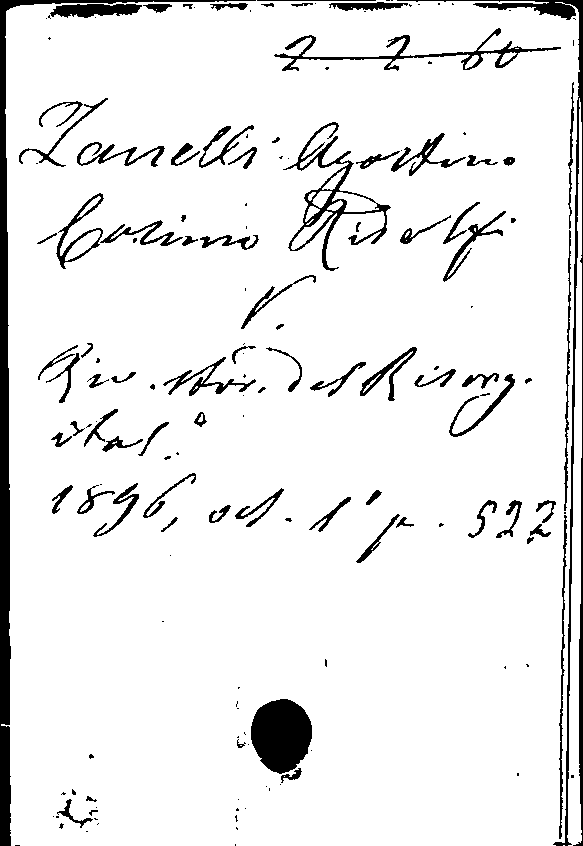 2. 2. 60
Zanelli Agostino
Cosimo Ridolfi
V.
Riv. stor. del Risorg.
ital.°
1896, oct. 1° p. 522